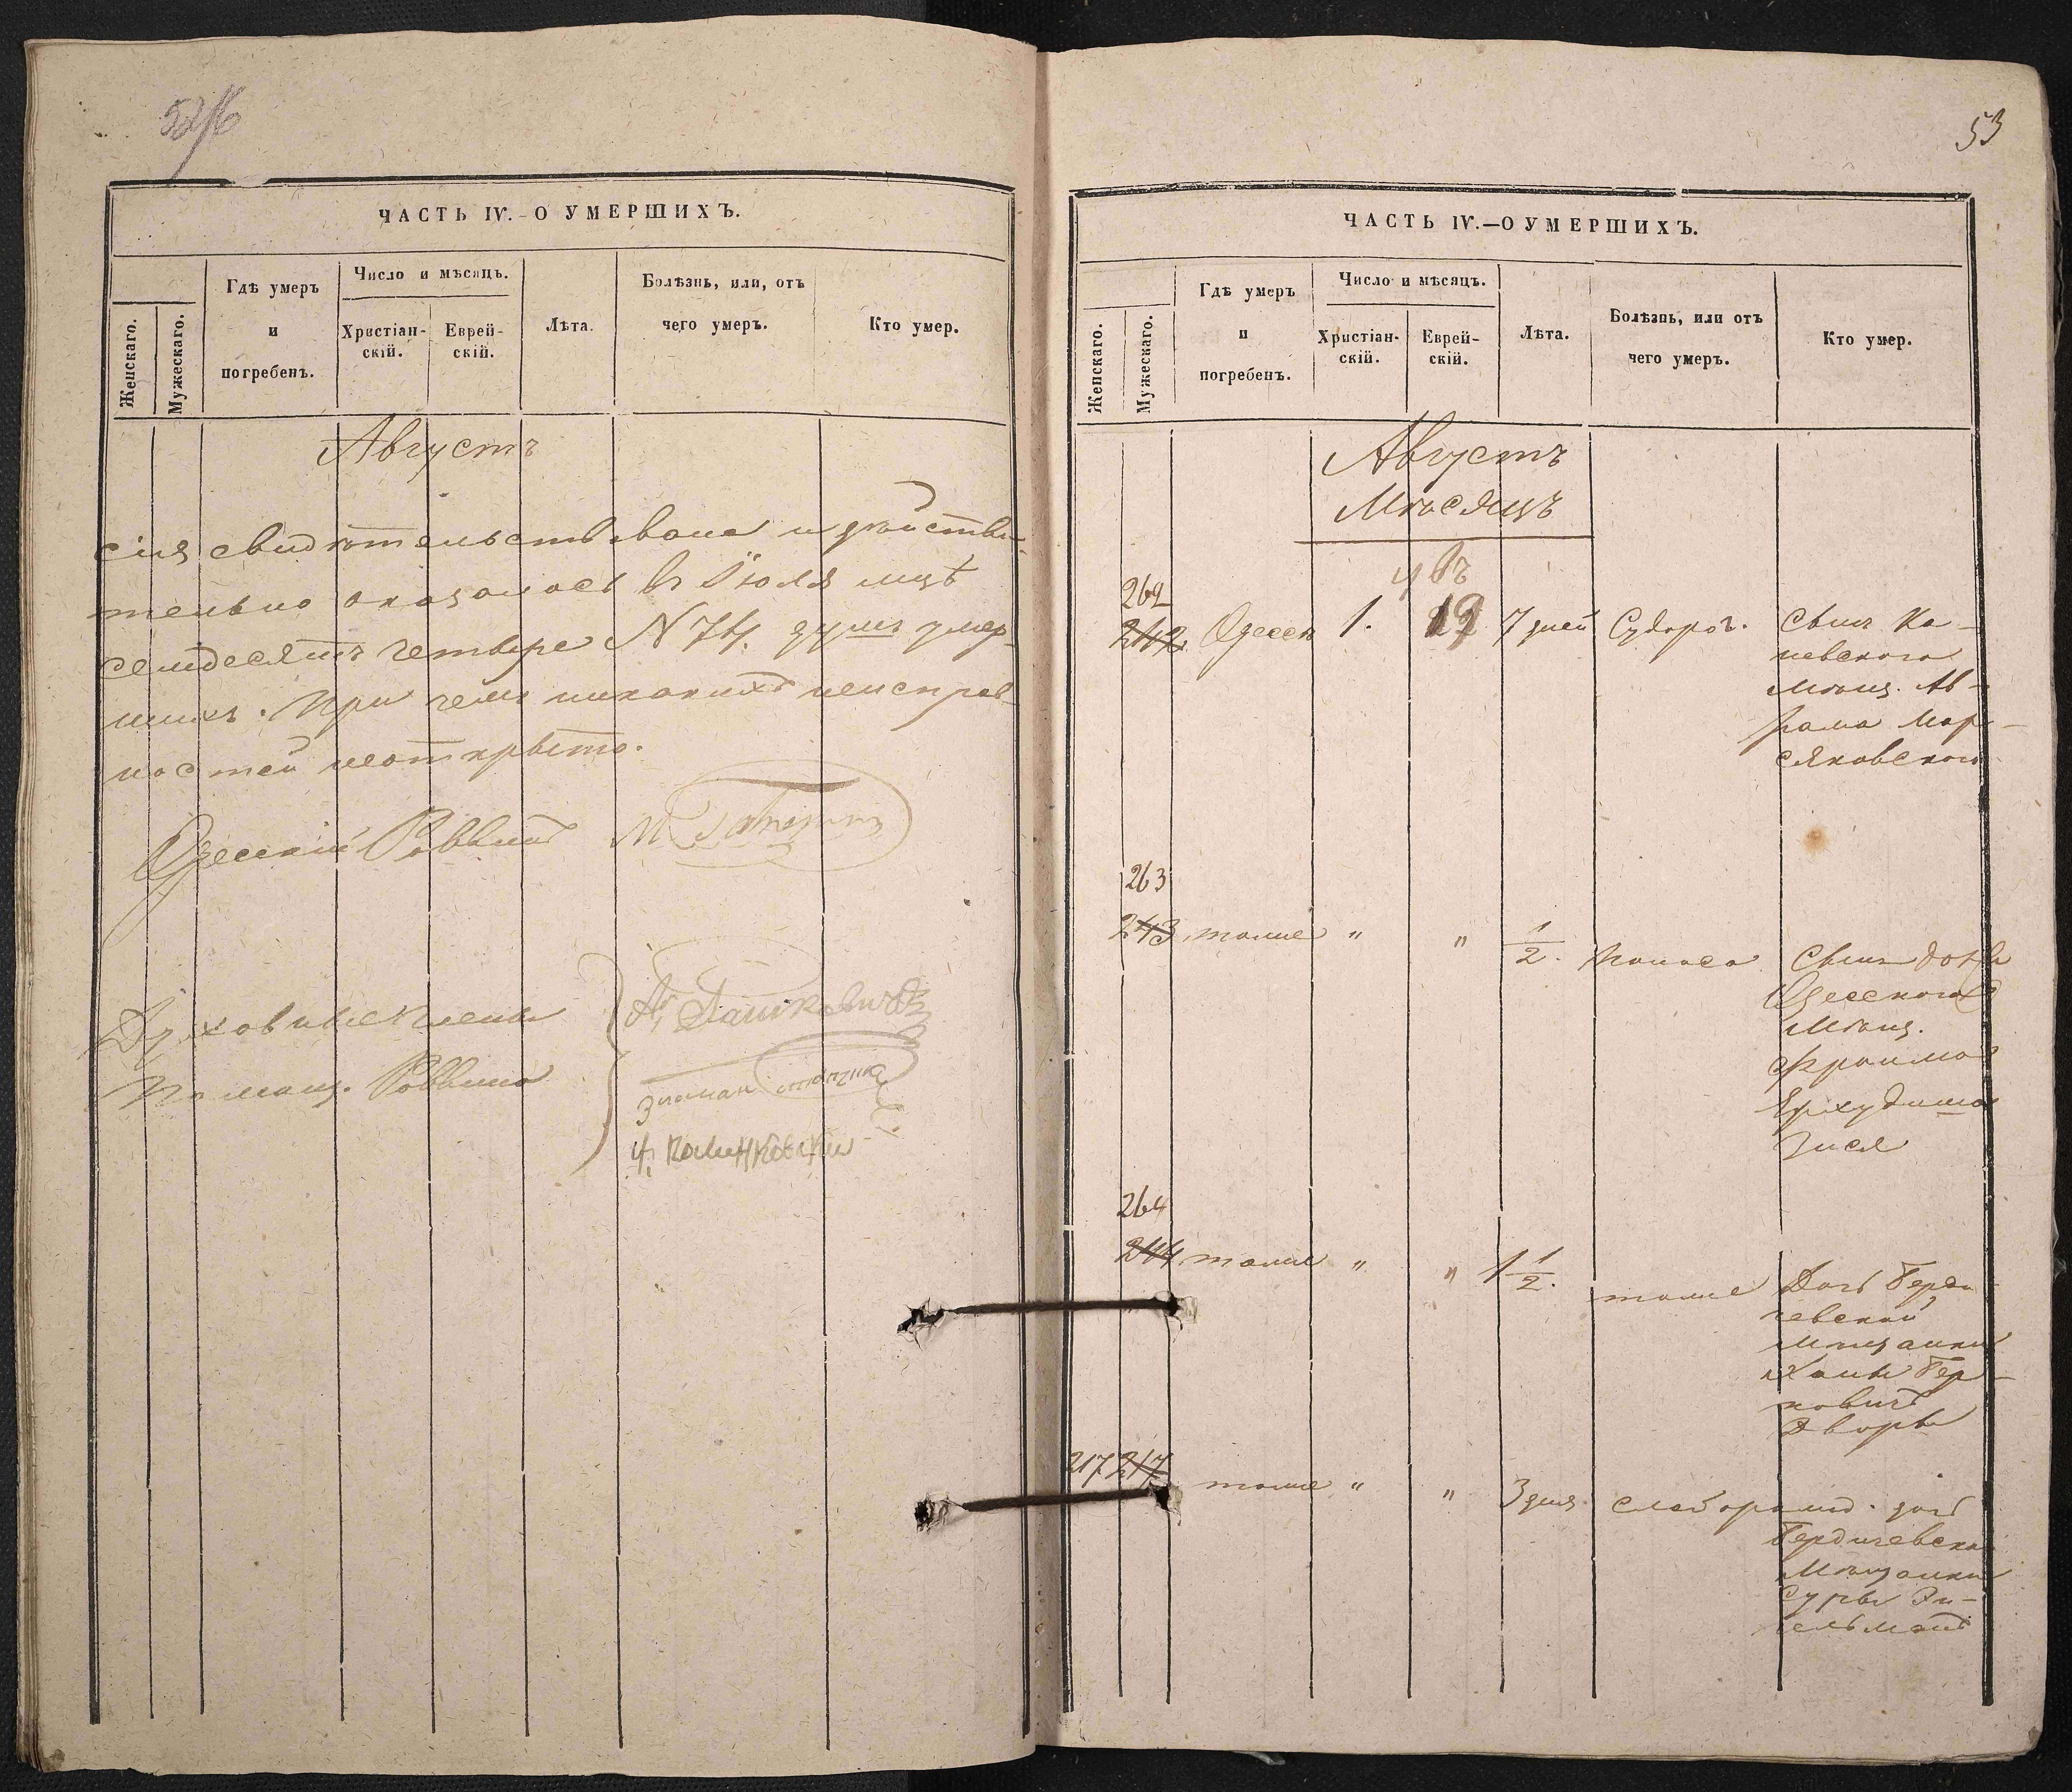 53
ЧАСТЬ IV.-О УМЕРШИХЪ.
Женскаго.
Мужескаго.
Гдѣ умеръ
и
погребенъ.
Число и мѣсяцъ.
Христіан-
скій.
Еврей-
скій.
Лѣта.
Болѣзнь, или, отъ
чего умеръ.
Кто умер.
Августъ
сія свидѣтельствована и дѣйстви-
тельно оказалось въ Іюля мцѣ
семдесятъ четыре N 74. душъ умер-
шихъ. При чемъ никакихъ неисправ-
ностей неоткрыто.
Одесскій Раввинъ М
Духовные члены
Помощ. Раввина
ЧАСТЬ IV.—О УМЕРШИХЪ.
Женскаго.
Мужескаго.
Гдѣ умеръ
и
погребенъ.
Число и мѣсяцъ.
Христіан-
скій.
Еврей-
скій.
Лѣта.
Болѣзнь, или отъ
чего умеръ.
Кто умер.
Августъ
Мѣсяцъ
262
242 Одесса 1. 7 дней Судорог. Сынъ Ка-
невскаго
Мѣщ. Ав-
рама Мар-
сяковскаго
263
243 тоже " " 1/2. Поноса Сынъ
Одесскаго
Мѣщ.
Фроима
264
244 тоже " " 1 1/2. тоже Дочь Берди
чевской
Мѣщанки
Ханы Бер-
ковичъ
Дворы
217 217 тоже " " 3 дня слаборожд. дочь
Бердичевской
Мѣщанки
Суры Эн-
гельманъ